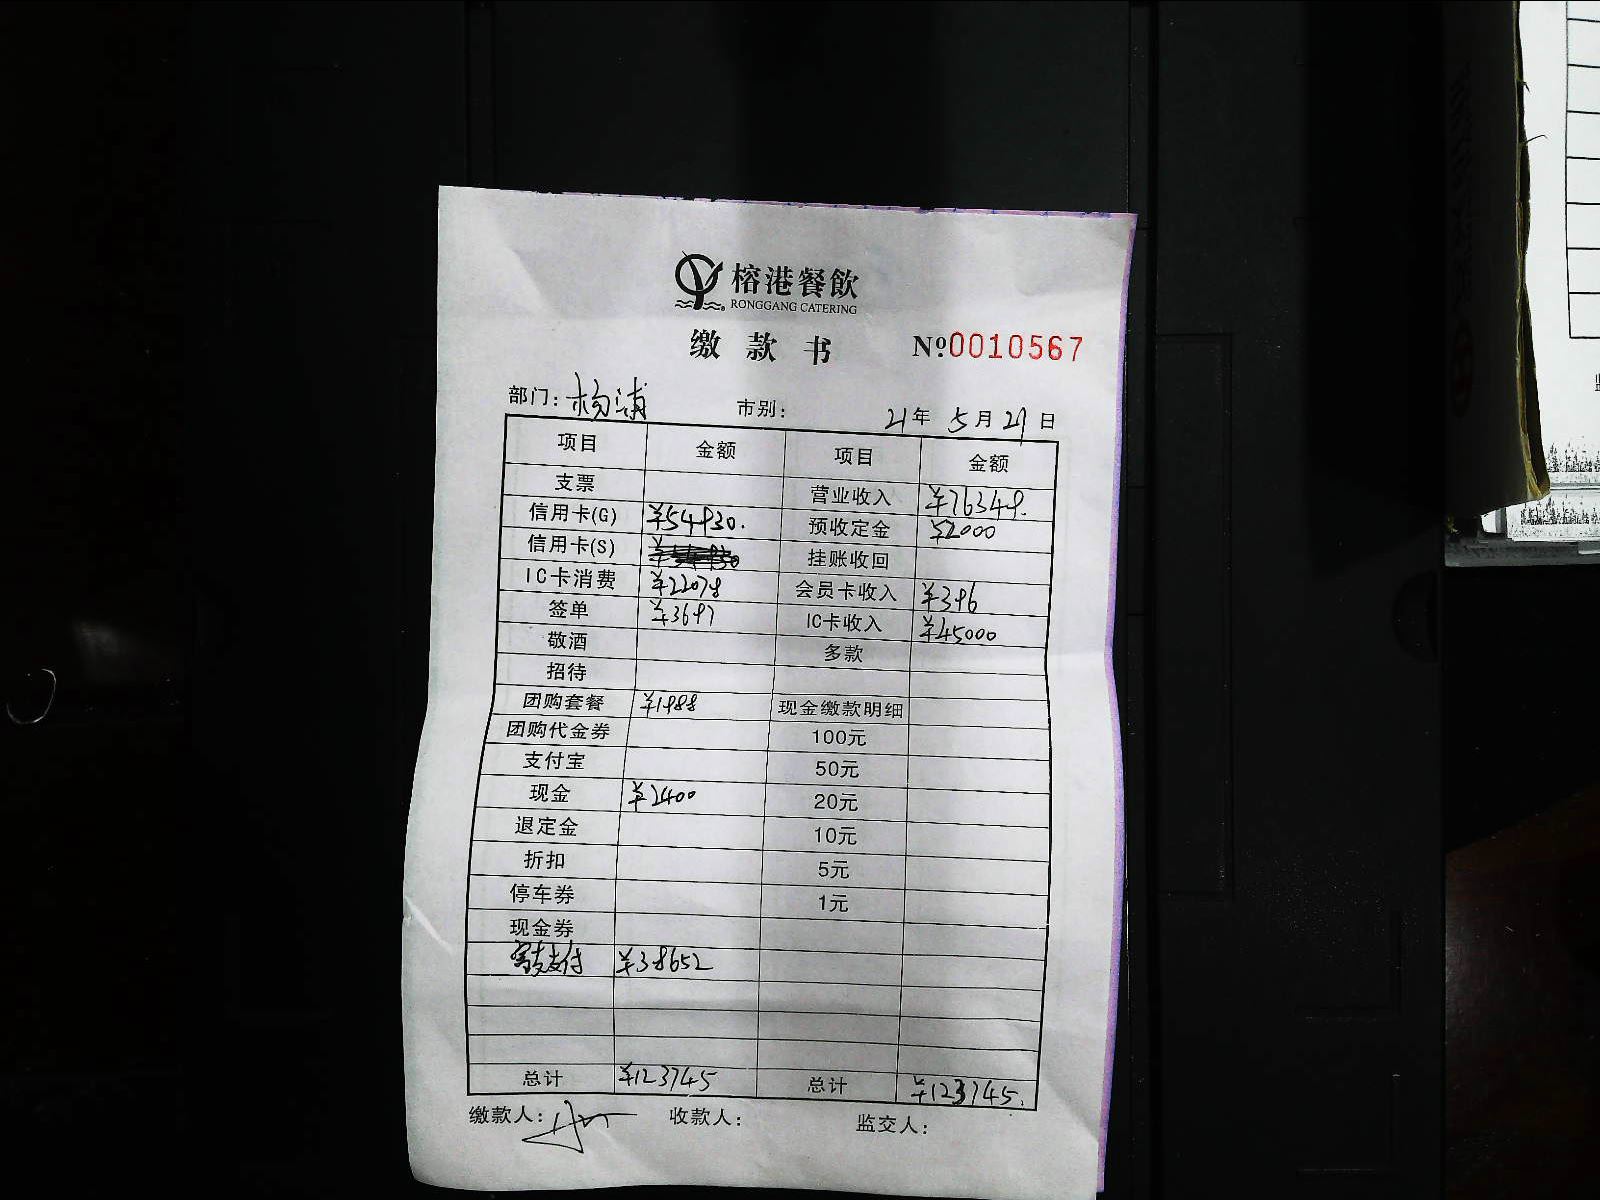 榕港餐飲
RONGGANG CATERING
缴款书 №0010567
部门: 杨浦 市别: 21年 5月 日
项目 金额 项目 金额
支票 营业收入 ¥76349.
信用卡(G) ¥54930. 预收定金 ¥2000
信用卡(S) 挂账收回
IC卡消费 ¥22078 会员卡收入 ¥396
签单 ¥3697 IC卡收入 ¥45000
敬酒 多款
招待
团购套餐 ¥1988 现金缴款明细
团购代金券 100元
支付宝 50元
现金 ¥2400 20元
退定金 10元
折扣 5元
停车券 1元
现金券
支付 ¥38652
总计 ¥123745 总计 ¥123745.
缴款人: 收款人: 监交人: